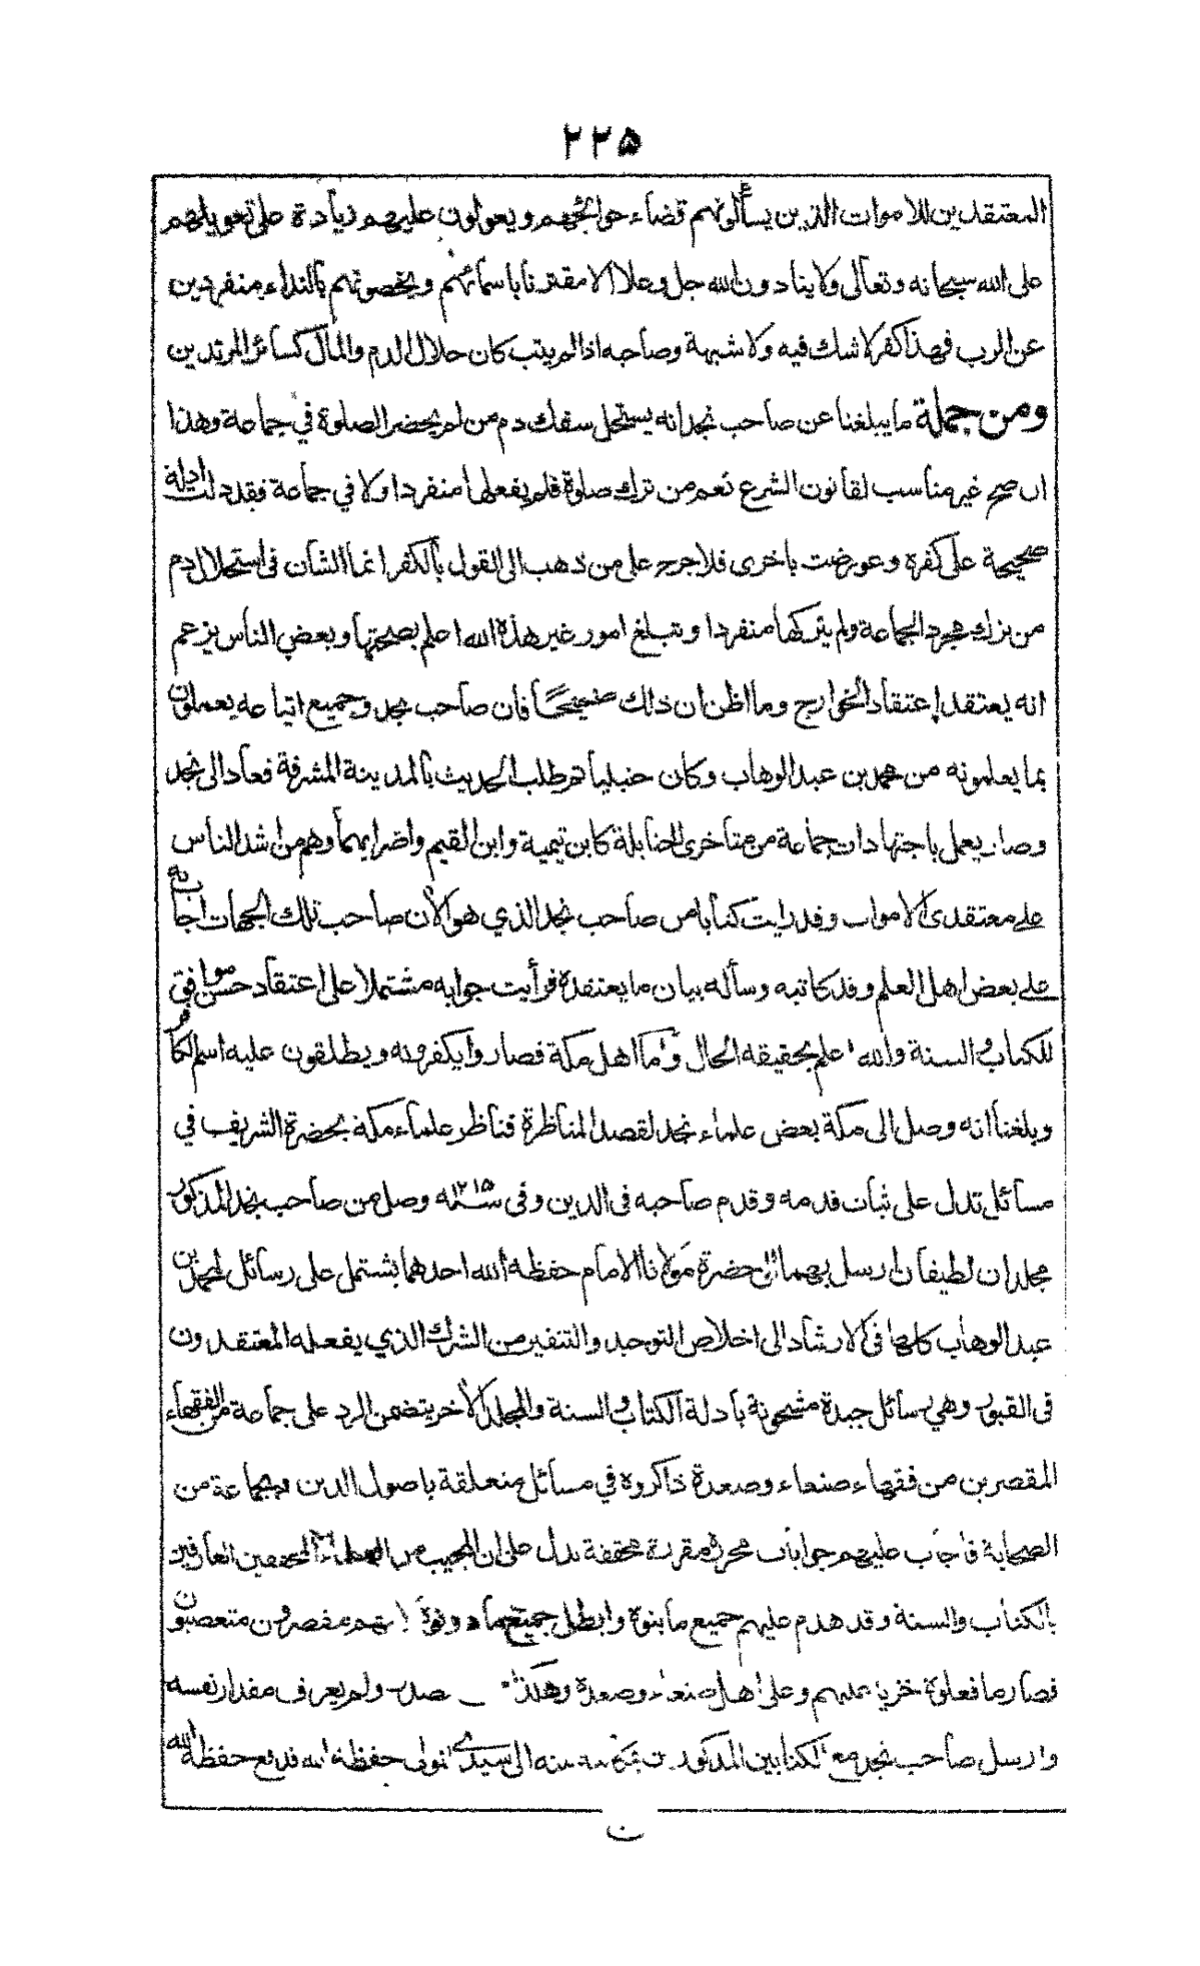 ۲۲۵
المعتقدين للاموات الذين يسألونهم قضاء حوائجهم ويعولون عليهم زيادة على تعويلهم
على الله سبحانه وتعالى ولا ينادون الله جل وعلا الا مقترنا باسمائهم ويخصونهم بالنداء منفردين
عن الرب فهذا كفر لا شك فيه ولا شبهة وصاحبه اذا لم يتب كان حلال الدم والمال كسائر المرتدين
ومن جملة ما يبلغنا عن صاحب نجد انه يستحل سفك دم من لم يحضر الصلوة في جماعة وهذا
ان صح غير مناسب لقانون الشرع نعم من ترك صلوة فلم يفعلها منفردا ولا في جماعة فقد دلت ادلة
صحيحة على كفره وعورضت باخرى فلا حرج على من ذهب الى القول بالكفر انما الشأن في استحلال دم
من ترك مجرد الجماعة ولم يتركها منفردا وتبلغ امور غير هذه الله اعلم بصحتها وبعض الناس يزعم
انه يعتقد إعتقاد الخوارج وما اظن ان ذلك صحيحًا فان صاحب نجد وجميع اتباعه يعملون
بما يعلمونه من محمد بن عبد الوهاب وكان حنبليا ثم طلب الحديث بالمدينة المشرفة فعاد الى نجد
وصار يعمل باجتهادات جماعة من متاخرى الحنابلة كابن تيمية وابن القيم واضرابهما وهم من اشد الناس
على معتقدى الاموات وقد رايت كتابا من صاحب نجد الذي هو الآن صاحب تلك الجهات اجاب به
على بعض اهل العلم وقد كاتبه وسأله بيان ما يعتقده فرأيت جوابه مشتملا على اعتقاد حسن موافق
للكتاب والسنة والله اعلم بحقيقة الحال واما اهل مكة فصاروا يكفرونه ويطلقون عليه اسم الكافر
وبلغنا انه وصل الى مكة بعض علماء نجد لقصد المناظرة فناظر علماء مكة بحضرة الشريف في
مسائل تدل على ثبات قدمه وقدم صاحبه في الدين وفى سنة ۱۲۱۵ وصل من صاحب نجد المذكور
مجلدان لطيفان ارسل بهما الى حضرة مولانا الامام حفظه الله احدهما يشتمل على رسائل لمحمد بن
عبد الوهاب كلها في الارشاد الى اخلاص التوحيد والتنفير من الشرك الذي يفعله المعتقدون
في القبور وهي رسائل جيدة مشحونة بادلة الكتاب والسنة والمجلد الآخر يتضمن الرد على جماعة من الفقهاء
المقصرين من فقهاء صنعاء وصعدة ذاكروه في مسائل متعلقة باصول الدين وبجماعة من
الصحابة فاجاب عليهم جوابات محررة مقررة محققة تدل على ان المجيب من العلماء المحققين العارفين
بالكتاب والسنة وقد هدم عليهم جميع ما بنوه وابطل جميع ما دونوه لانهم مقصرون متعصبون
فصار ما فعلوه خزيا عليهم وعلى اهل صنعاء وصعدة وهكذا من تصدر ولم يعرف مقدار نفسه
وارسل صاحب نجد مع الكتابين المذكورين منه الى سيدى المولى حفظه الله فدفع حفظه الله
ن